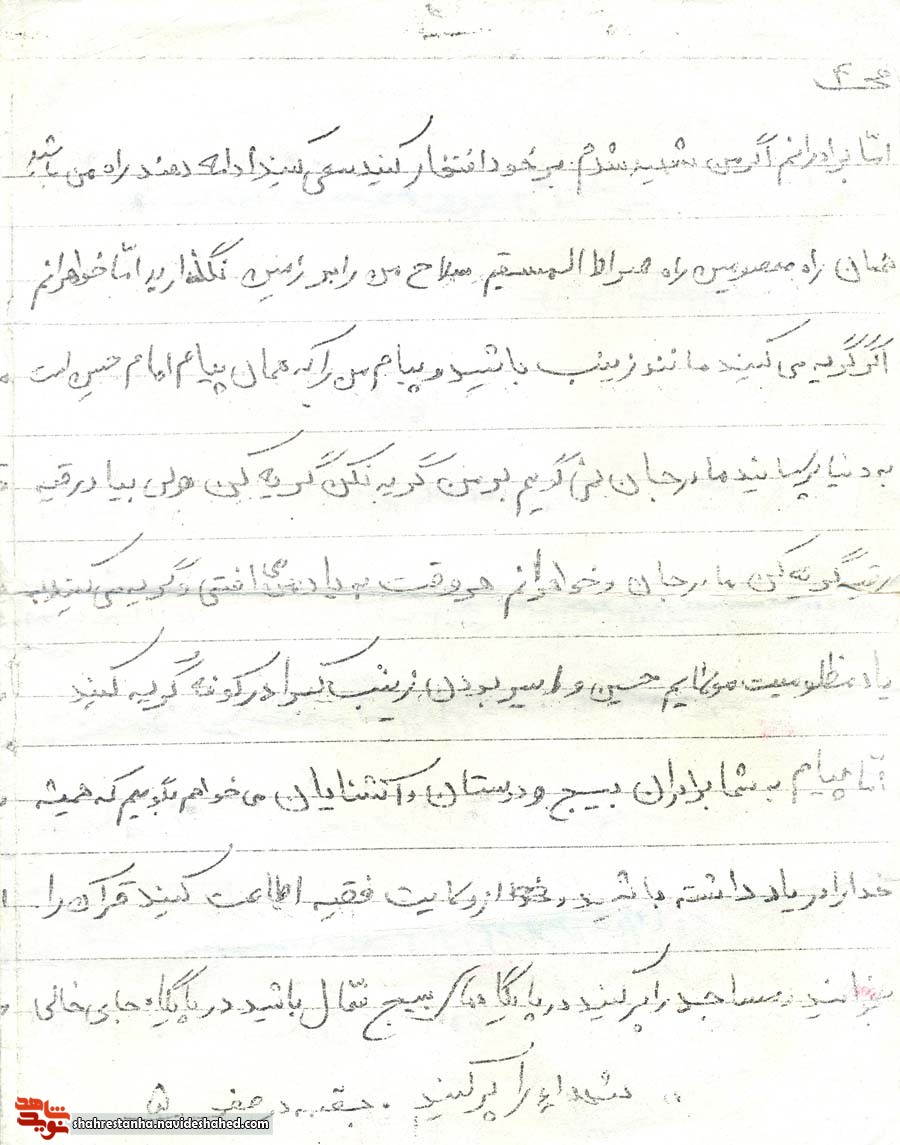 ص ۴
امّا برادرانم اگر من شهید شدم بر خود افتخار کنید سعی کنید ادامه دهند راه من باشید
همان راه معصومین راه صراط المستقیم سلاح من را بر زمین نگذارید امّا خواهرانم
اگر گریه می کنید مانند زینب باشید و پیام من را که همان پیام امام حسین است
به دنیا برسانید مادر جان نمی گویم بر من گریه نکن گریه کن ولی بیاد رقیه
رقیه گریه کن مادر جان و خواهرانم هر وقت به یاد من می افتی و گریه می کنید به
یاد مظلومیت مولایم حسین و اسیر بودن زینب کبرا در کوفه گریه کنید
امّا پیام به شما برادران بسیج و دوستان و آشنایان می خواهم بگویم که همیشه
خدا را در یاد داشته باشید و از ولایت فقیه اطاعت کنید قرآن را
بخوانید مساجد را پر کنید در پایگاه های بسیج فعال باشید در پایگاه جای خالی
شهداء را پر کنید . بقیه در صفحه ۵
نوید شاهد
shahrestanha.navideshahed.com